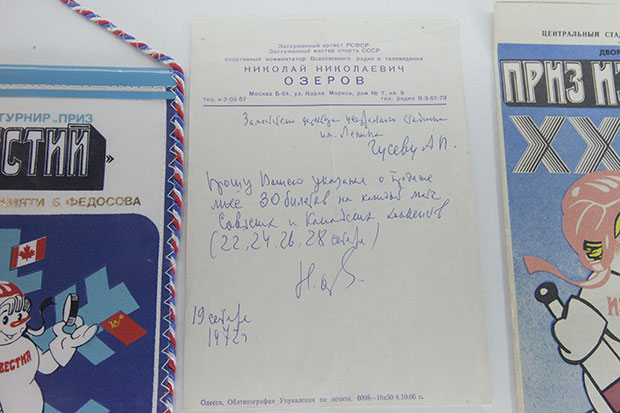 ТУРНИР „ПРИЗ
ЕСТИЙ»
ПАМЯТИ Б. ФЕДОСОВА
ВЕСТИЯ
Заслуженный артист РСФСР
Заслуженный мастер спорта СССР
спортивный комментатор Всесоюзного радио и телевидения
НИКОЛАЙ НИКОЛАЕВИЧ
ОЗЕРОВ
Москва Б-64, ул. Карла Маркса, дом № 7, кв. 9
тел. к-7-02-57 тел. радио В-3-67-79
Заместителю директора центрального стадиона
им. Ленина
Гусеву А П.
Прошу Вашего указания о продаже
мне 30 билетов на каждый матч
Советских и Канадских хоккеистов
(22, 24, 26, 28 сентября)
19 сентября
1972г.
Одесса, Облтипография Управления по печати, 6098—10х50 8.10.66 г.
ЦЕНТРАЛЬНЫЙ СТАД
ДВОР
ПРИЗ ИЗ
XX